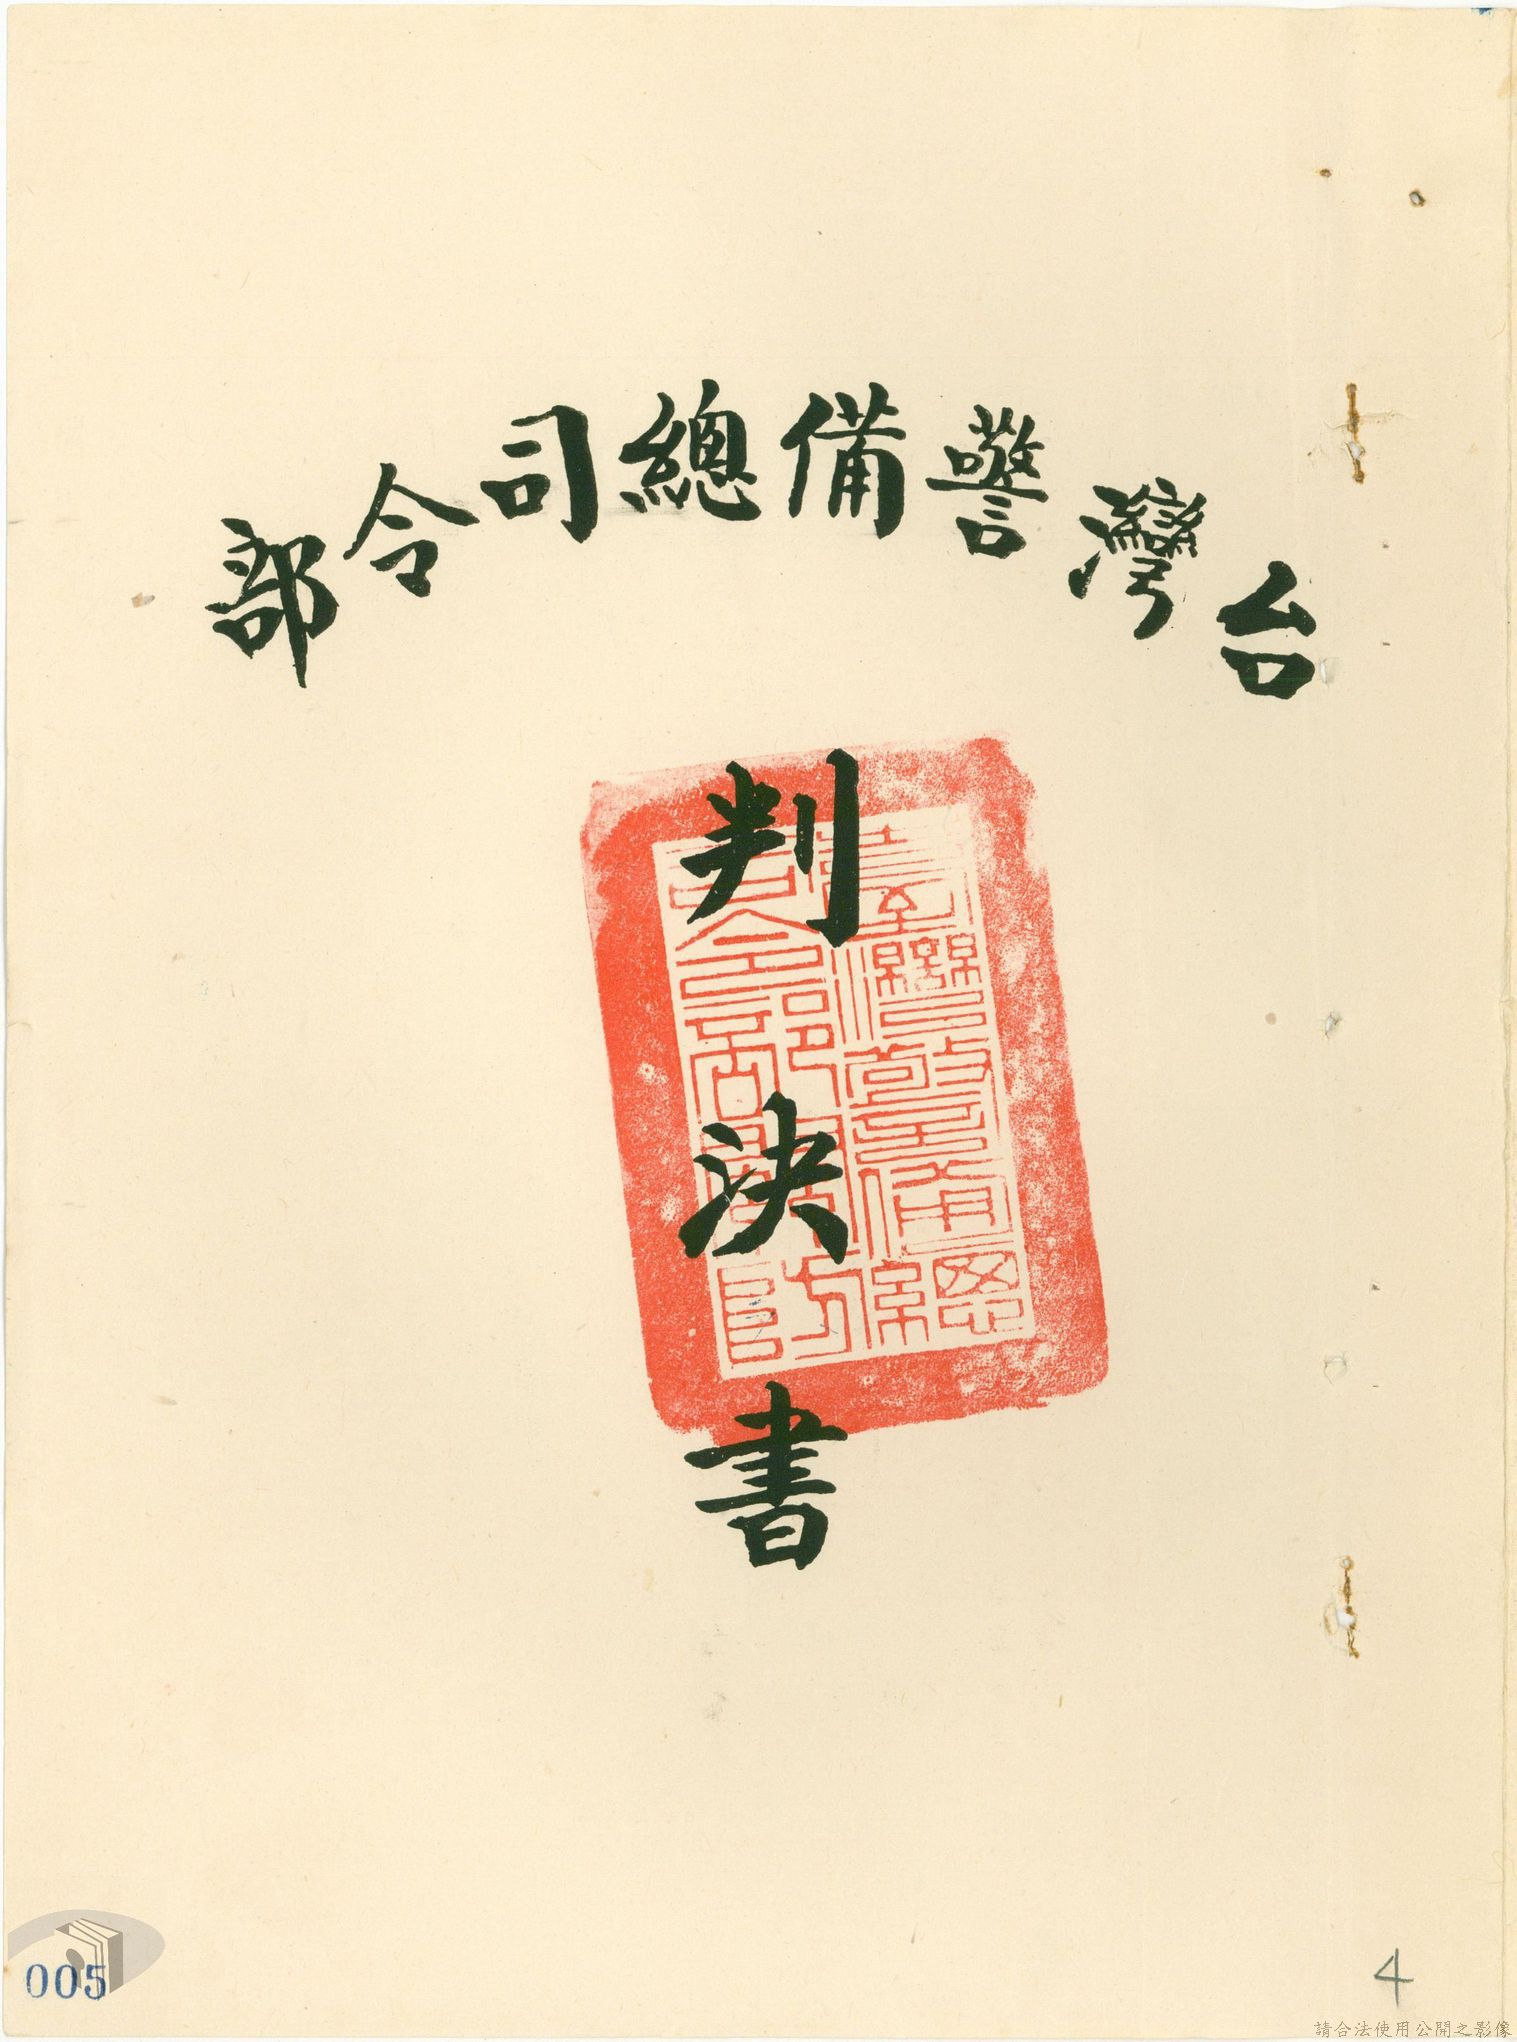 台灣警備總司令部
判決書
臺灣警備總
司令部
關防
005
4
請合法使用公開之影像